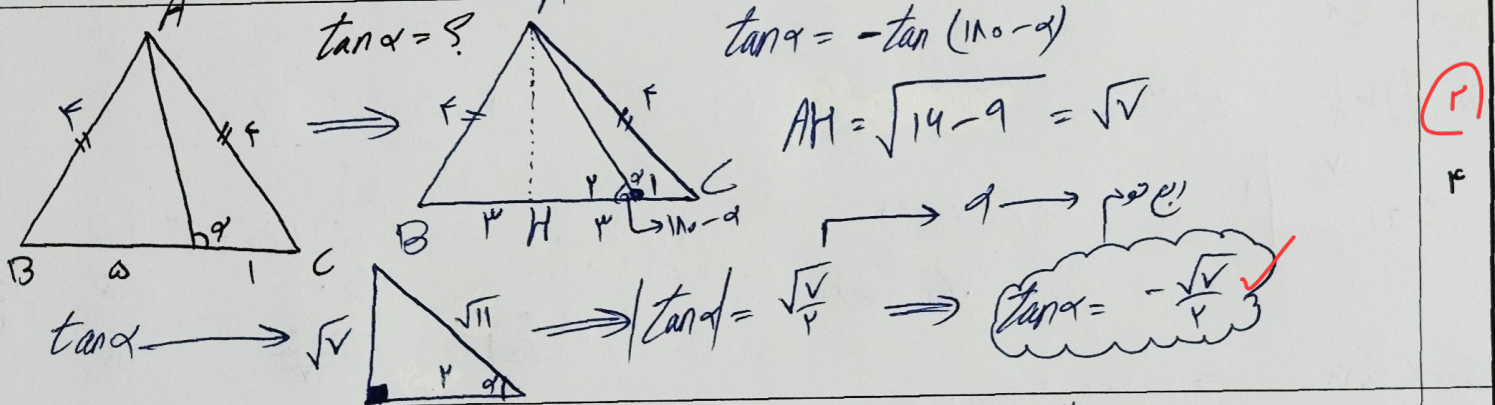 A
tanα = ؟
A
tanα = -tan (۱۸۰-α)
۴ ۴
⟹
۴ ۴
AH = √(۱۶-۹) = √۷
۲
۴
B ۵ α ۱ C
B ۳ H ۲ ۳ α ۱ C
۱۸۰-α
α → ربع دوم
tanα → √۷ √۱۱ ۲ α
⟹ |tanα| = √۷/۲ ⟹ tanα = -√۷/۲